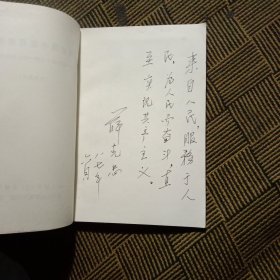 来自人民,服务于人
民,为人民而奋斗直
至实现共产主义。
薛克忠
八七年